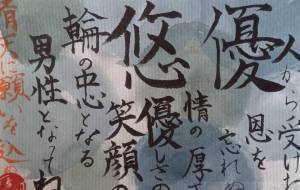 優
人から受けた
恩を
忘れぬ
情の厚さ
悠
優しさの
笑顔の
輪の中心となる
男性となって
に願いを込